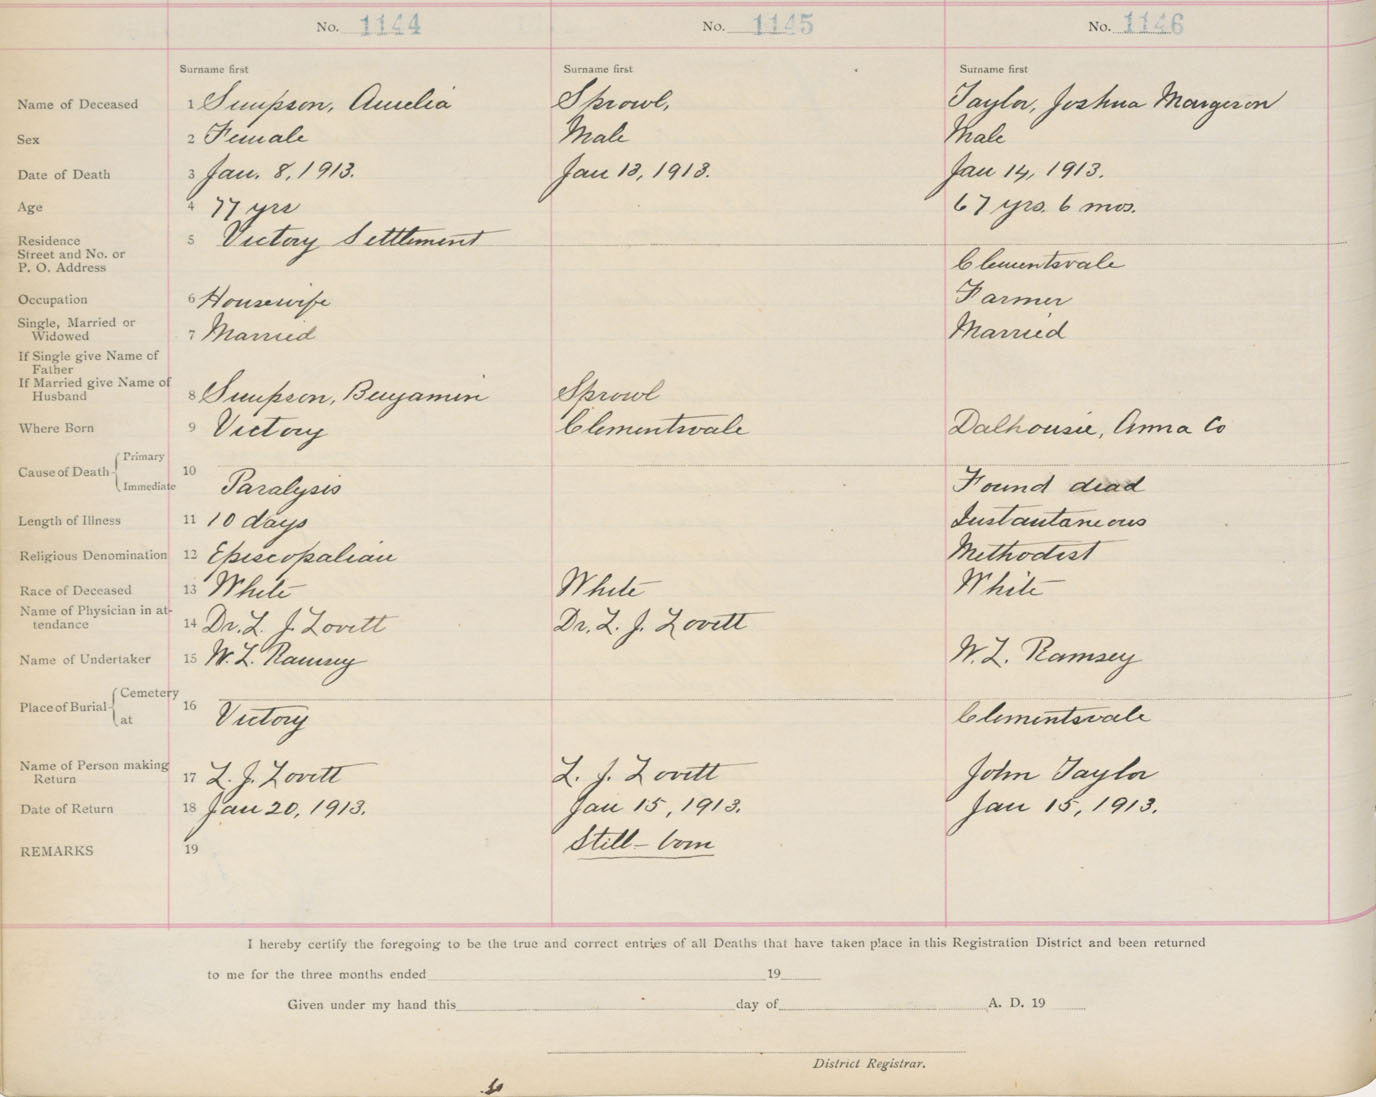 No. 1144 No. 1145 No. 1146
Surname first Surname first Surname first
Name of Deceased 1 Simpson, Amelia Sprowl, Taylor, Joshua Margeson
Sex 2 Female Male Male
Date of Death 3 Jan. 8, 1913. Jan 13, 1913. Jan 14, 1913.
Age 4 77 yrs 67 yrs. 6 mos.
Residence 5 Victory Settlement
Street and No. or
P. O. Address Clementsvale
Occupation 6 Housewife Farmer
Single, Married or
Widowed 7 Married Married
If Single give Name of
Father
If Married give Name of
Husband 8 Simpson, Benjamin Sprowl
Where Born 9 Victory Clementsvale Dalhousie, Anna Co
Primary
Cause of Death 10
Immediate Paralysis Found dead
Length of Illness 11 10 days Instantaneous
Religious Denomination 12 Episcopalian Methodist
Race of Deceased 13 White White White
Name of Physician in at-
tendance 14 Dr. L. J. Lovett Dr. L. J. Lovett
Name of Undertaker 15 W. L. Ramsey W. L. Ramsey
Cemetery
Place of Burial 16
at Victory Clementsvale
Name of Person making
Return 17 L. J. Lovett L. J. Lovett John Taylor
Date of Return 18 Jan 20, 1913. Jan 15, 1913. Jan 15, 1913.
REMARKS 19 Still-born
I hereby certify the foregoing to be the true and correct entries of all Deaths that have taken place in this Registration District and been returned
to me for the three months ended 19
Given under my hand this day of A. D. 19
District Registrar.